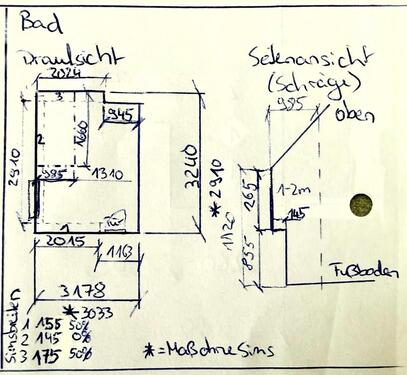 Bad
Draufsicht
2024
3
945
1660
2
2910
985
1310
1
Tür
2015
1163
3240
*2910
3178
*3033
Simsbreiten
1 155 50%
2 145 0%
3 175 50%
*=Maß ohne Sims
Seitenansicht
(Schräge)
985
oben
265
1-2m
145
1120
855
Fußboden